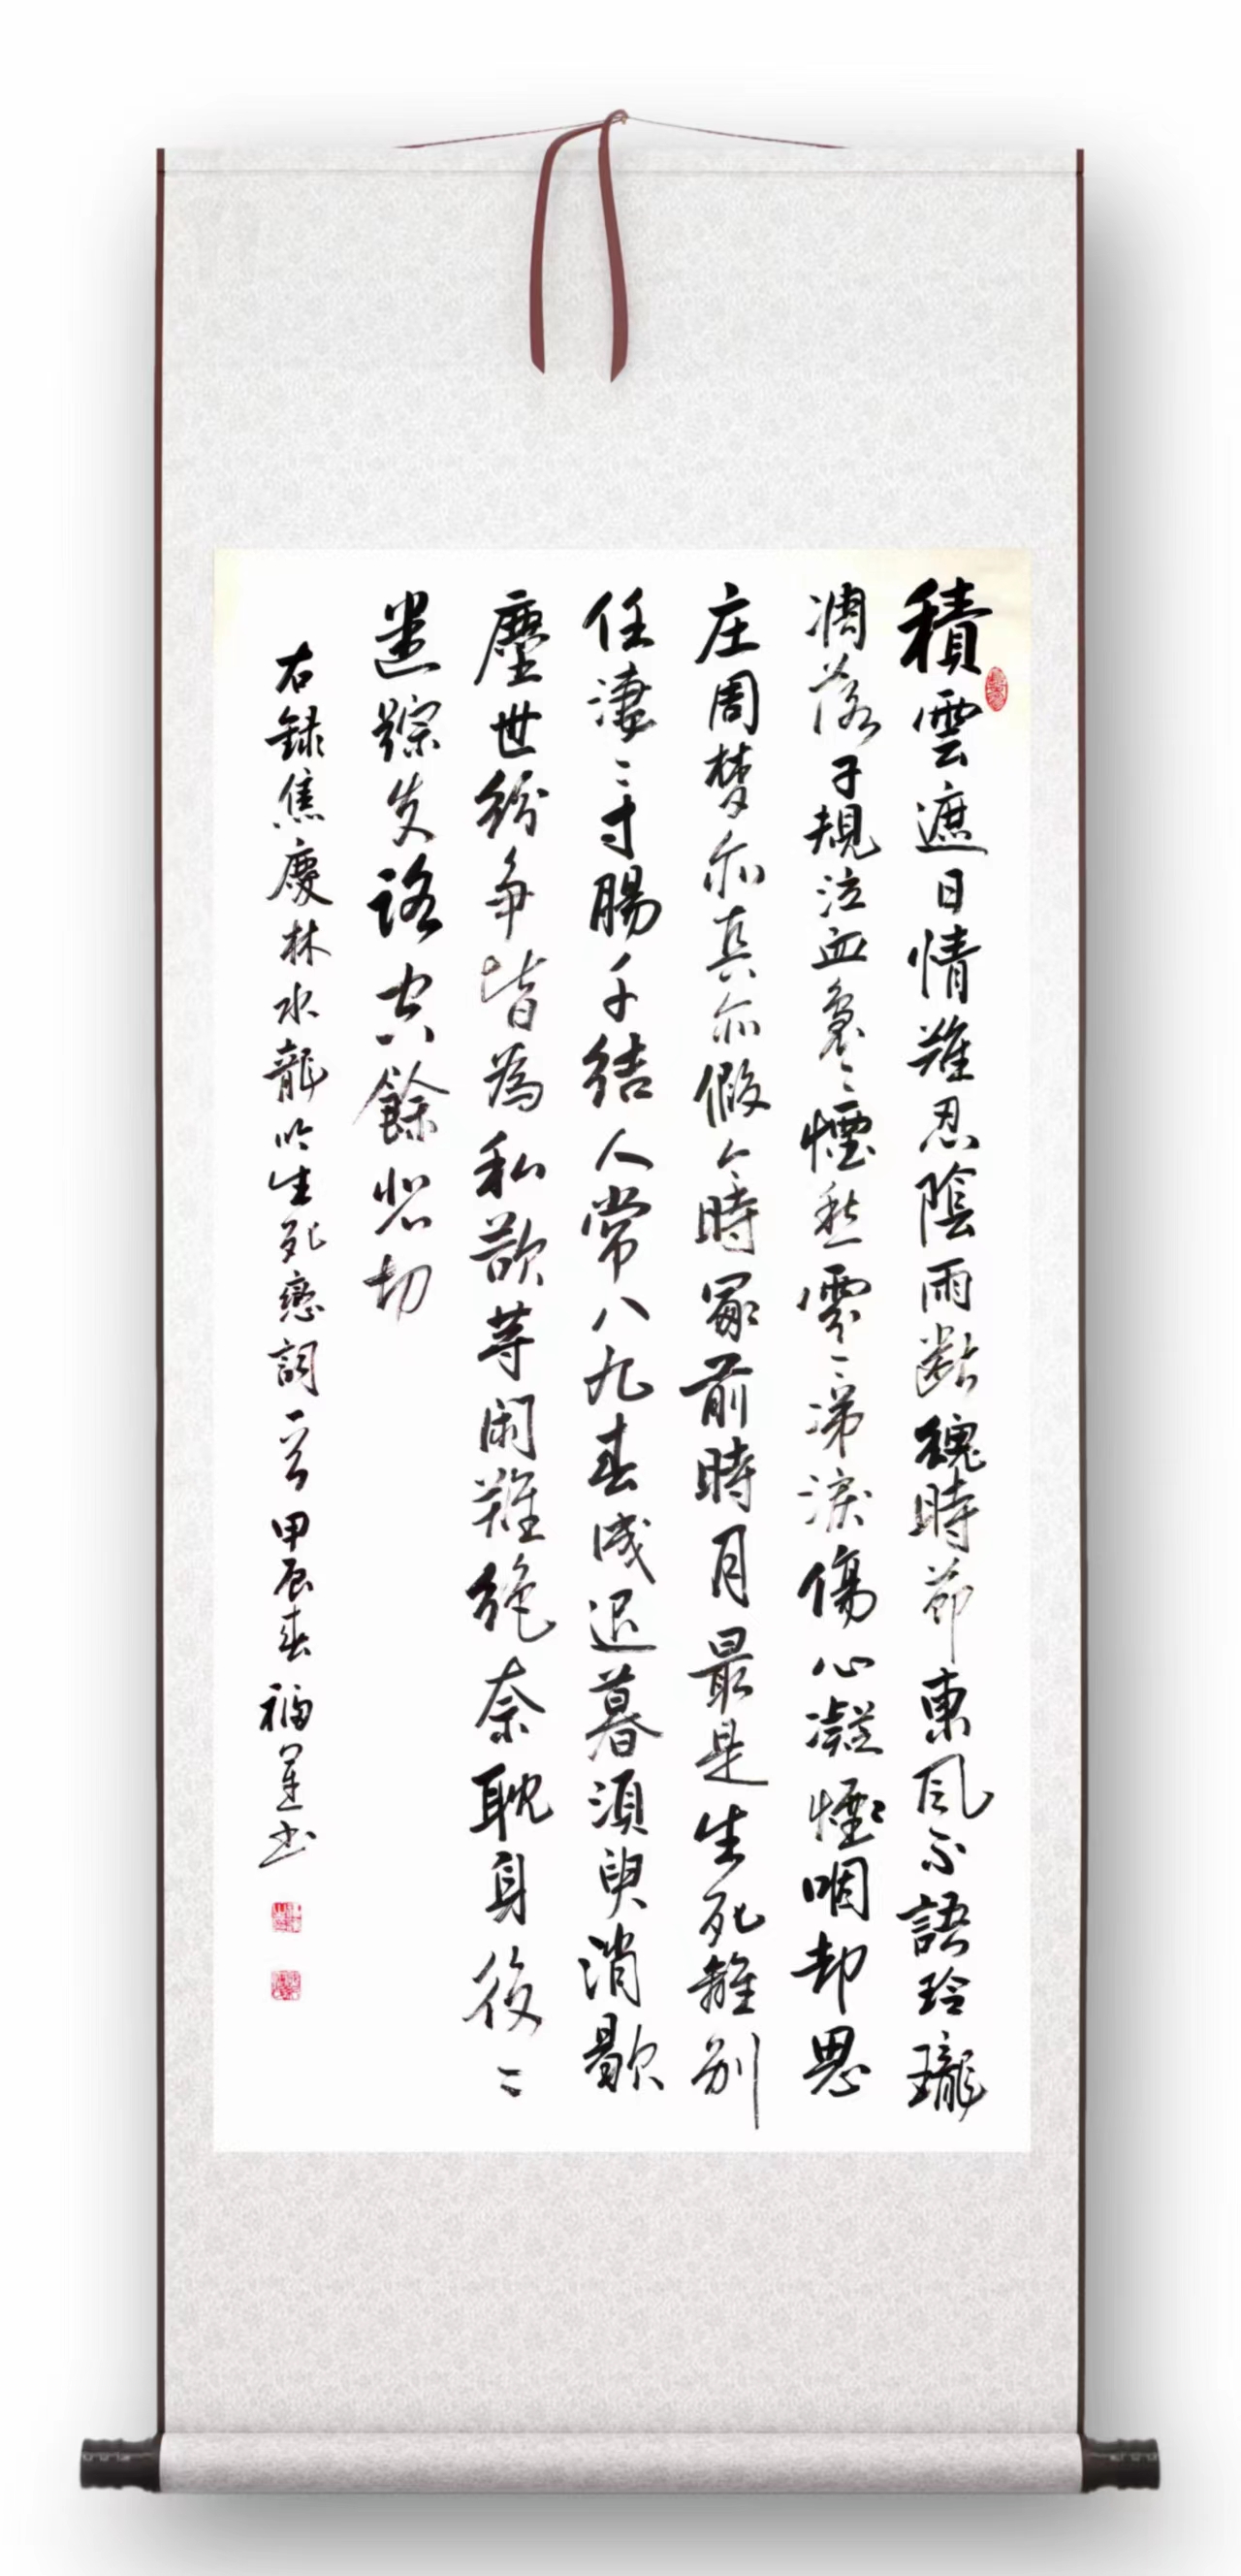 積雲遮日情難忍陰雨斷魂時節東風不語玲瓏
凋落子規泣血裊〻煙愁雲〻涕淚傷心凝煙咽却思
庄周梦亦真亦假今時冢前時月最是生死離別
任淒〻寸腸千結人常八九春成迟暮須臾消歇
塵世紛争皆為私欲等闲難絶奈耽身後〻
遺踪失路空餘悲切
右録焦慶林水龍吟生死戀詞一首甲辰春福運书